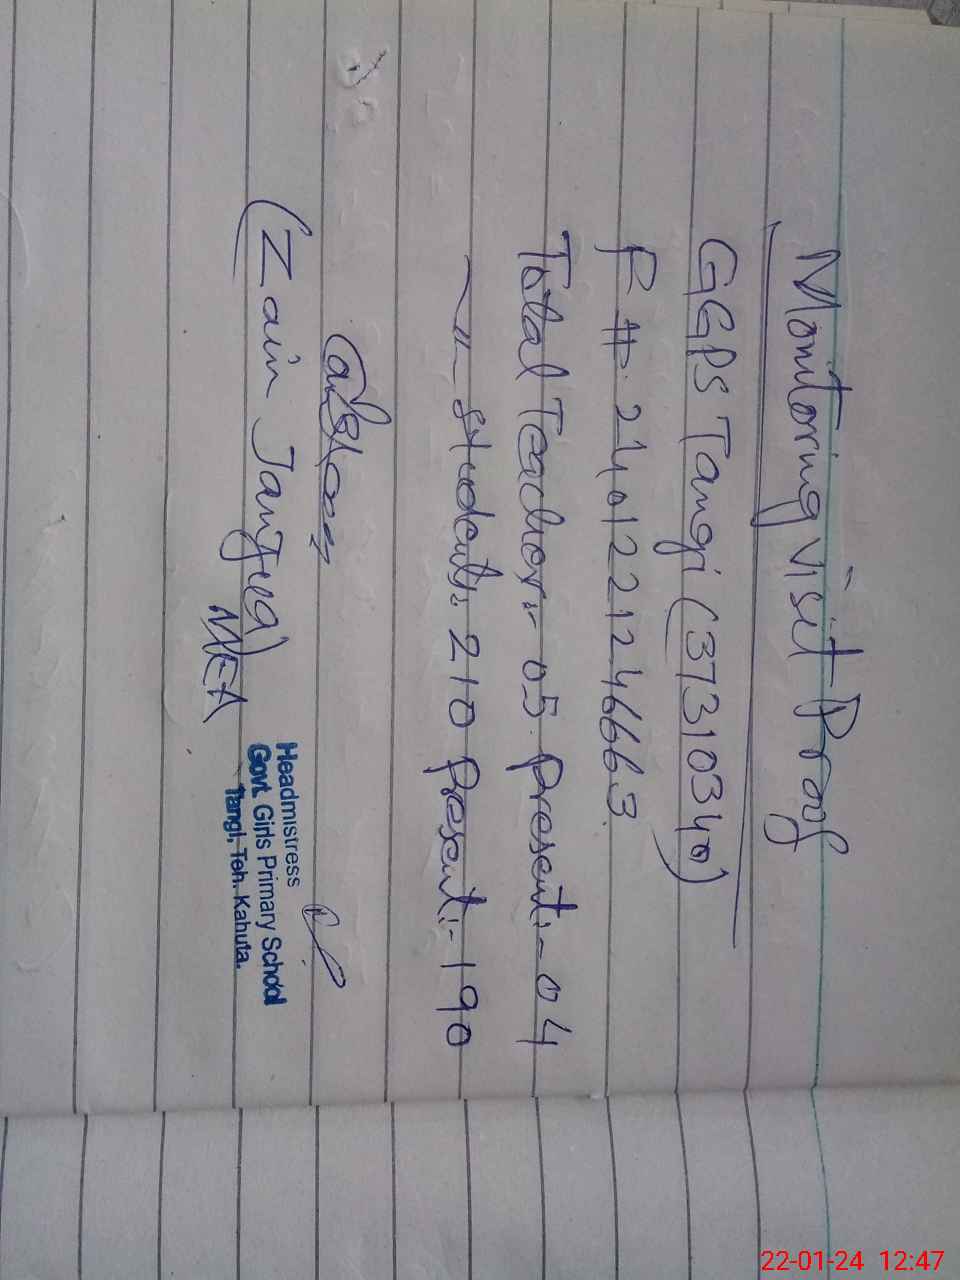 Monitoring Visit Proof
GGPS Tangi (37310340)
F #. 2401221246663.
Total Teacher:- 05. Present:- 04
~ 11 ~ Students: 210 Present:- 190
(Zain Janjua)
MEA
Headmistress
Govt. Girls Primary School
Tangi, Teh. Kahuta.
22-01-24 12:47